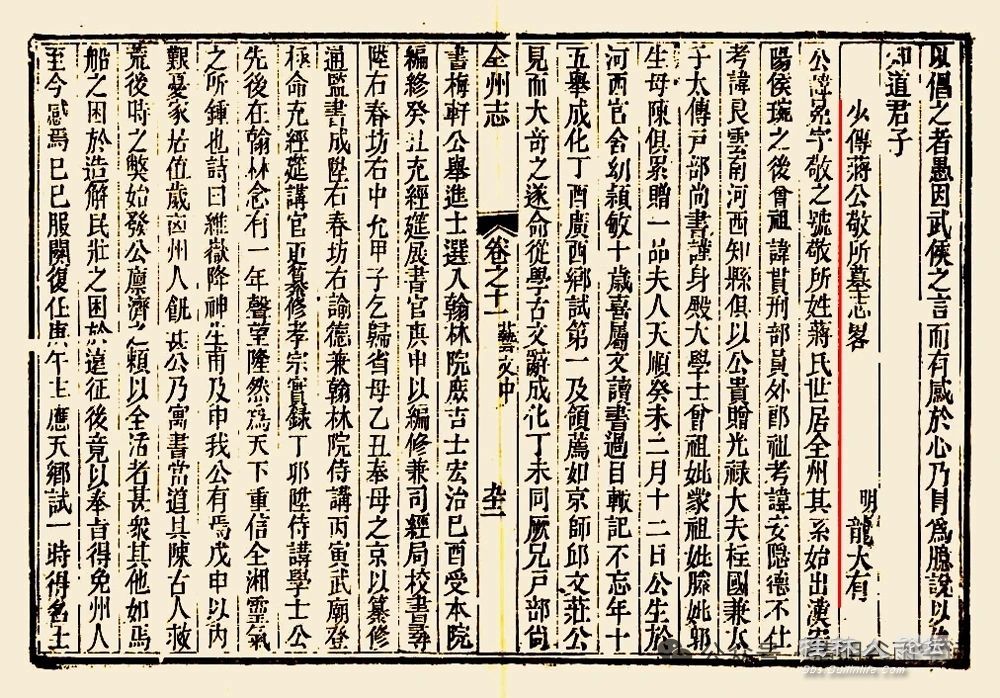 以倡之者愚因武侯之言而有感於心乃冐爲臆說以
知道君子
少傅蔣公敬所墓志畧
明龍大有
公諱冕字敬之號敬所姓蔣氏世居全州其系始出漢安
陽侯琬之後曾祖諱貫刑部員外郎祖考諱安隱德不仕
考諱良雲南河西知縣俱以公貴贈光祿大夫柱國兼太
子太傅戸部尚書謹身殿大學士曾祖妣蒙祖妣滕妣郭
生母陳俱累贈一品夫人天順癸未二月十二日公生於
河西官舍幼穎敏十歲喜屬文讀書過目輒記不忘年十
五舉成化丁酉廣西鄉試第一及領薦如京師邱文莊公
見而大奇之遂命從學古文辭成化丁未同厥兄戸部尚
全州志
卷之十一
藝文中
书梅軒公舉進士選入翰林院庶吉士宏治己酉受本院
編修癸丑充經筵展書官庚申以編修兼司經局校書尋
陞右春坊右中允甲子乞歸省母乙丑奉母之京以纂修
通鑑書成陞右春坊右諭德兼翰林院侍講丙寅武廟登
極命充經筵講官更纂修孝宗實錄丁卯陞侍講學士公
先後在翰林念有一年聲望隆然爲天下重信全湘靈氣
之所鍾也詩曰維嶽降神生甫及申我公有焉戊申以内
艱憂家居值歲凶州人飢甚公乃寓書當道具陳古人救
荒後時之獘始發公廪濟之頼以全活者甚衆其他如馬
船之困於造解民壯之困於遠征後竟以奉旨得免州人
至今感焉己巳服闋復任庚午主應天鄉試一時得名士